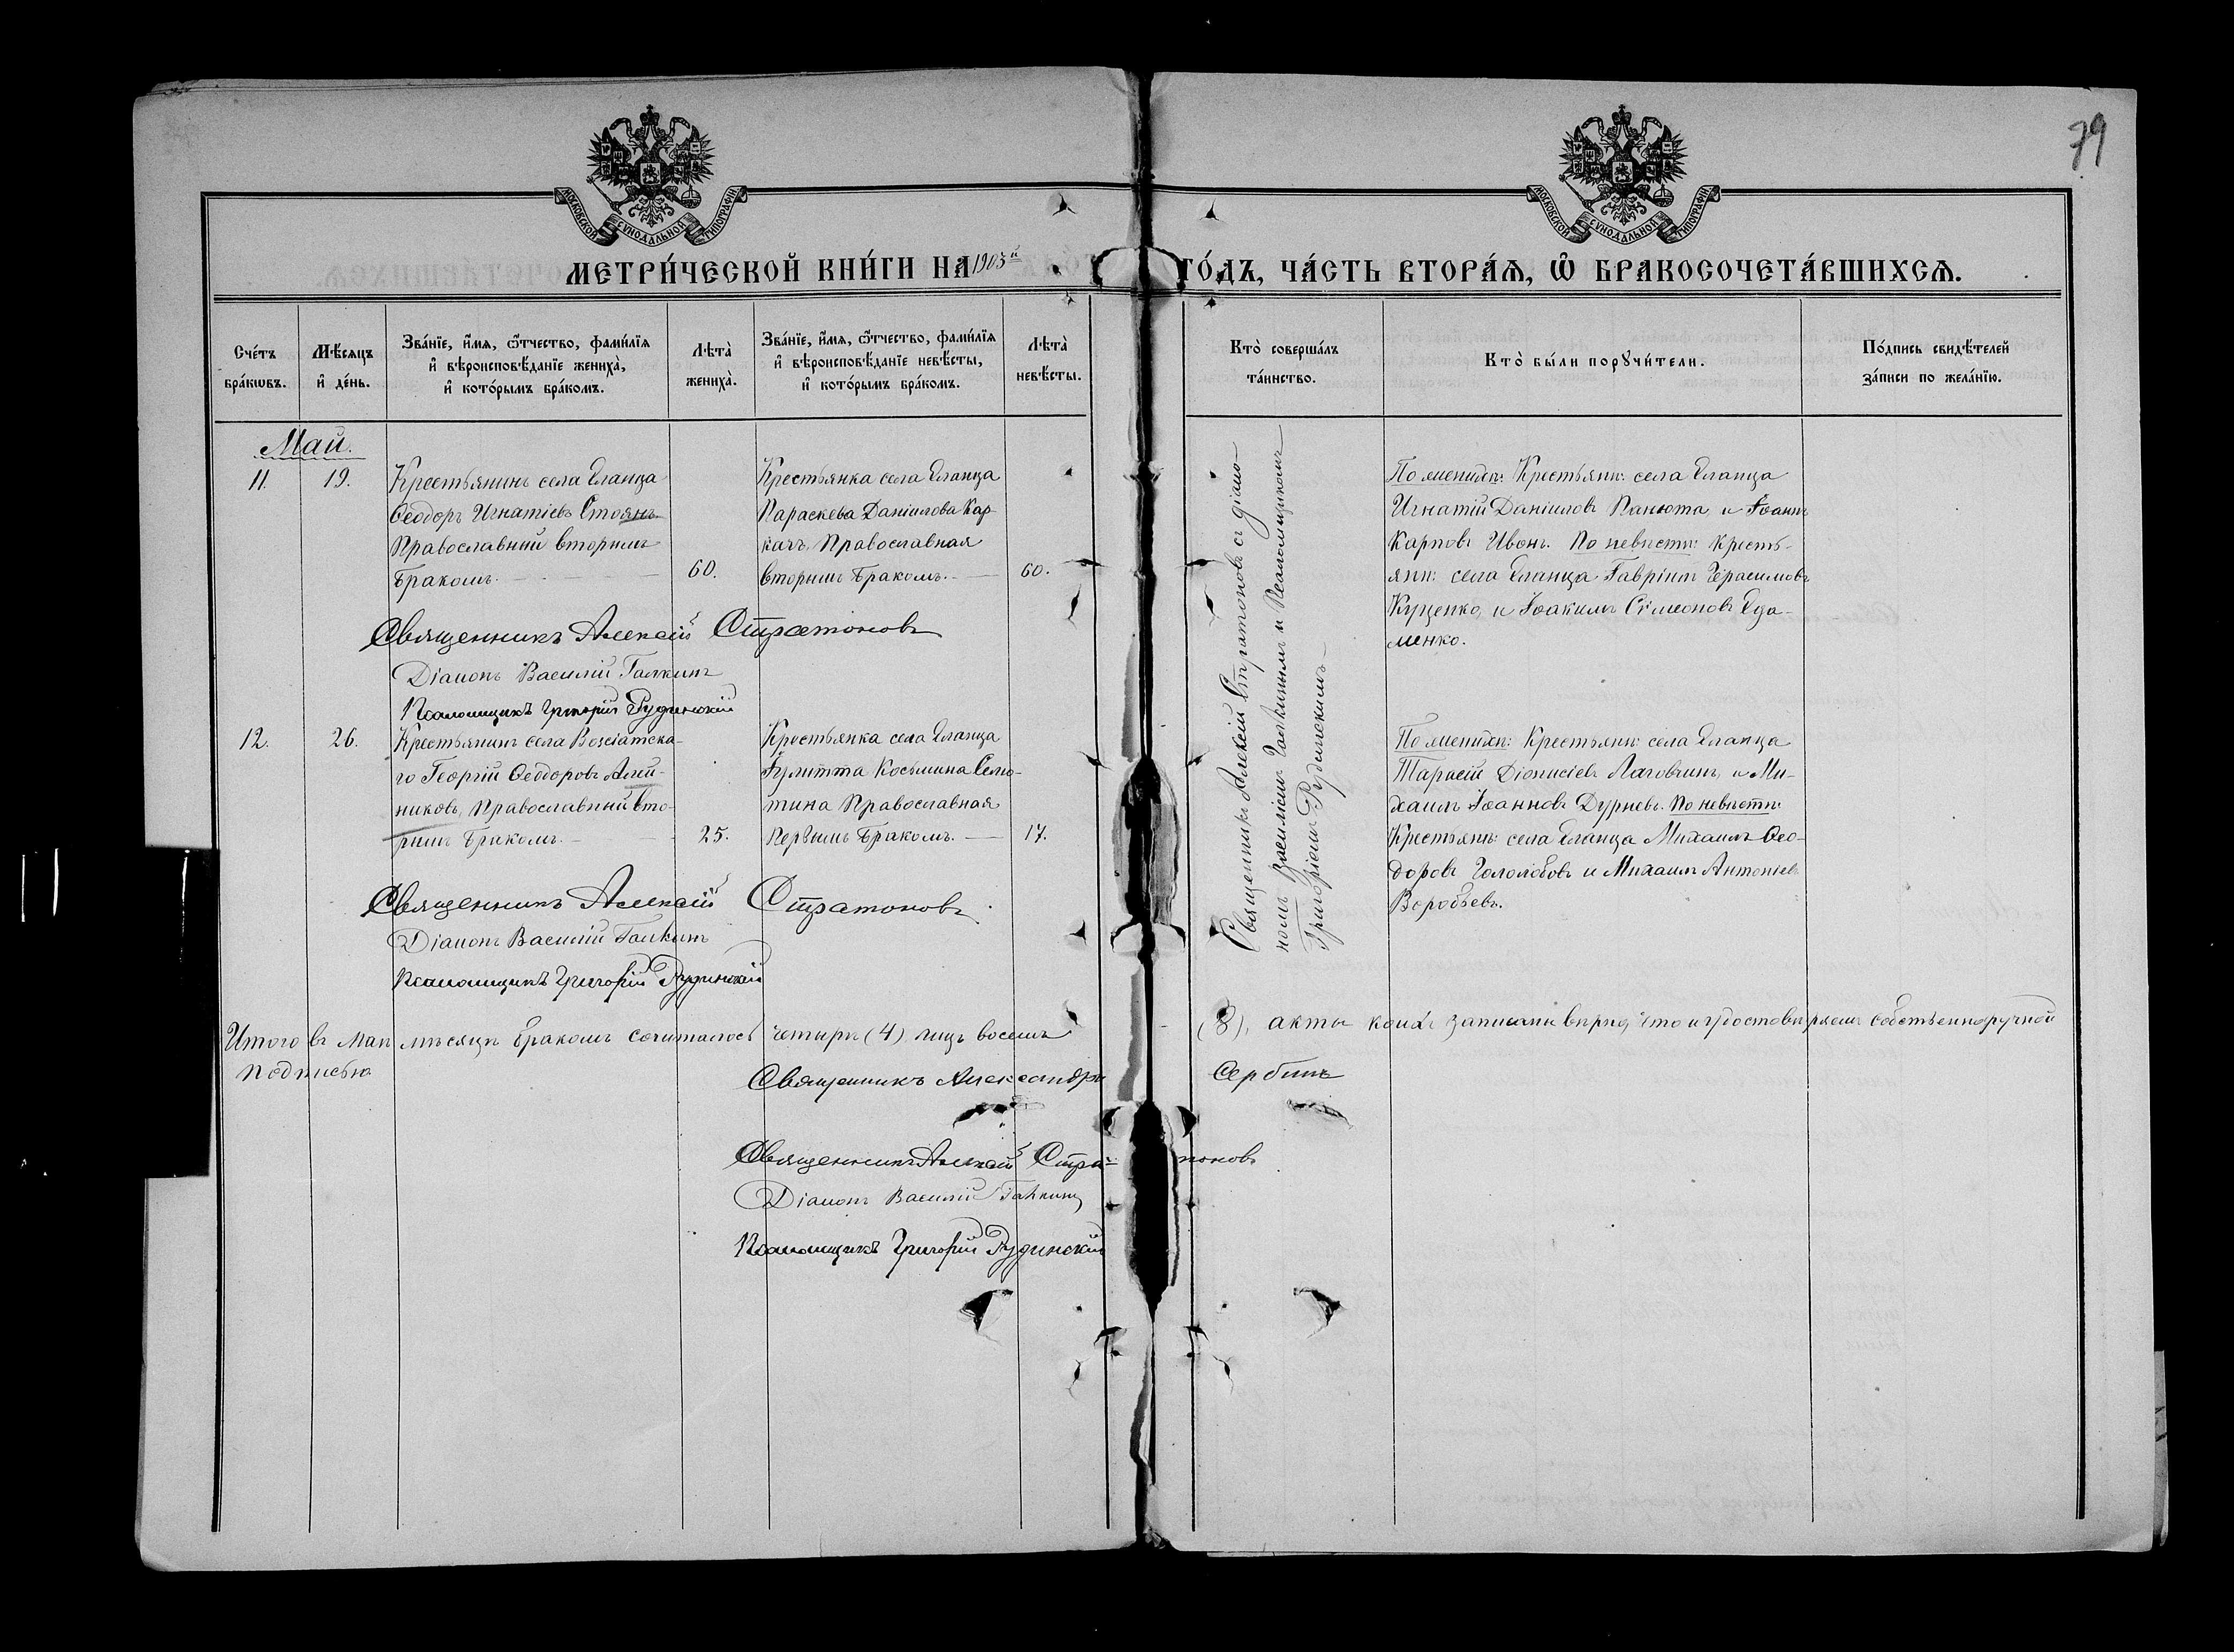 79
МОСКОВСКОЙ СѴНОДАЛЬНОЙ ТИПОГРАФІИ
МОСКОВСКОЙ СѴНОДАЛЬНОЙ ТИПОГРАФІИ
МЕТРИ́ЧЕСКОЙ КНИ́ГИ НА 1903й ГО́ДЪ, ЧА́СТЬ ВТОРА́Я, Ѿ БРАКОСОЧЕТА́ВШИХСЯ.
Сче́тъ бра́кѡвъ.
Мѣ́сяцъ и҆ де́нь.
Зва́нїе, и҆́мя, ѻ҆́тчество, фами́лїя и҆ вѣроисповѣ́данїе жениха̀, и҆ кото́рымъ бра́комъ.
Лѣта̀ жениха̀.
Зва́нїе, и҆́мя, ѻ҆́тчество, фами́лїя и҆ вѣроисповѣ́данїе невѣ́сты, и҆ кото́рымъ бра́комъ.
Лѣта̀ невѣ́сты.
Кто̀ соверша́лъ та́инство.
Кто̀ бы́ли порꙋчи́тели.
По́дпись свидѣ́телей за́писи по жела́нїю.
Май.
11.
19.
Крестьянинъ села Еланца
Ѳеодоръ Игнатіевъ Стоянъ
Православный вторымъ
бракомъ.
60.
Крестьянка села Еланца
Параскева Даніилова Кар-
качъ, Православная
вторымъ бракомъ.
60.
Священникъ Алексій Стратоновъ съ діако-
номъ Василіемъ Галкинымъ и Псаломщикомъ
Григоріемъ Рудинскимъ
По женихѣ: Крестьян: села Еланца
Игнатій Даніиловъ Панюта и Іоаннъ
Карповъ Ивонъ. По невѣстѣ: Кресть-
яни: села Еланца Гавріилъ Герасимовъ
Куценко, и Іоакимъ Сімеоновъ Еда-
менко.
Священникъ Алексій Стратоновъ
Діаконъ Василій Галкинъ
Псаломщикъ Григорій Рудинскій
12.
26.
Крестьянинъ села Возсіатска-
го Георгій Ѳеодоровъ
никовъ, Православный вто-
рымъ бракомъ.
25.
Крестьянка села Еланца
Іулитта Косьмина Селю-
тина Православная
первымъ бракомъ.
17.
По женихѣ: Крестьян: села Еланца
Тарасій Діонисіевъ Лаговчинъ, и Ми-
хаилъ Іоанновъ Дурневъ. По невѣстѣ:
Крестьян: села Еланца Михаилъ Ѳео-
доровъ Гололобовъ и Михаилъ Антоніевъ
Воробьевъ.
Священникъ Алексій Стратоновъ
Діаконъ Василій Галкинъ
Псаломщикъ Григорій Рудинскій
Итого въ Маѣ мѣсяцѣ бракомъ сочиталось четыре (4) лицъ восемь (8), акты коихъ записаны вѣрно, что и удостовѣряемъ собственноручной
подписью
Священникъ Александръ Сербинъ
Священникъ Алексій Стратоновъ
Діаконъ Василій Галкинъ
Псаломщикъ Григорій Рудинскій